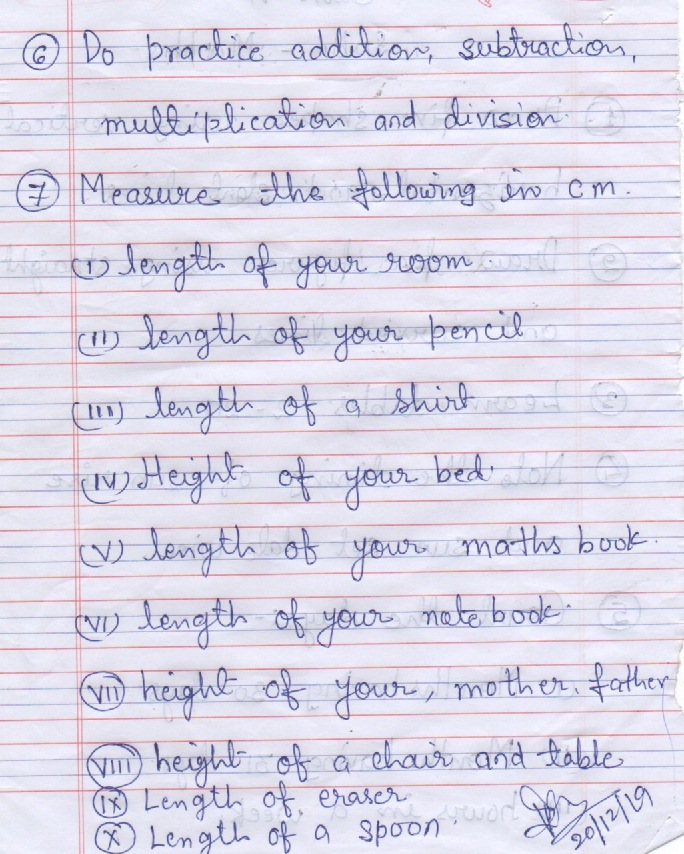 ⑥ Do practice addition, subtraction,
multiplication and division.
⑦ Measure the following in cm.
(I) length of your room
(II) length of your pencil
(III) length of a shirt
(IV) Height of your bed.
(V) length of your maths book.
(VI) length of your note book.
(VII) height of your, mother, father
(VIII) height of a chair and table
(IX) Length of eraser
(X) Length of a spoon.
20/12/19